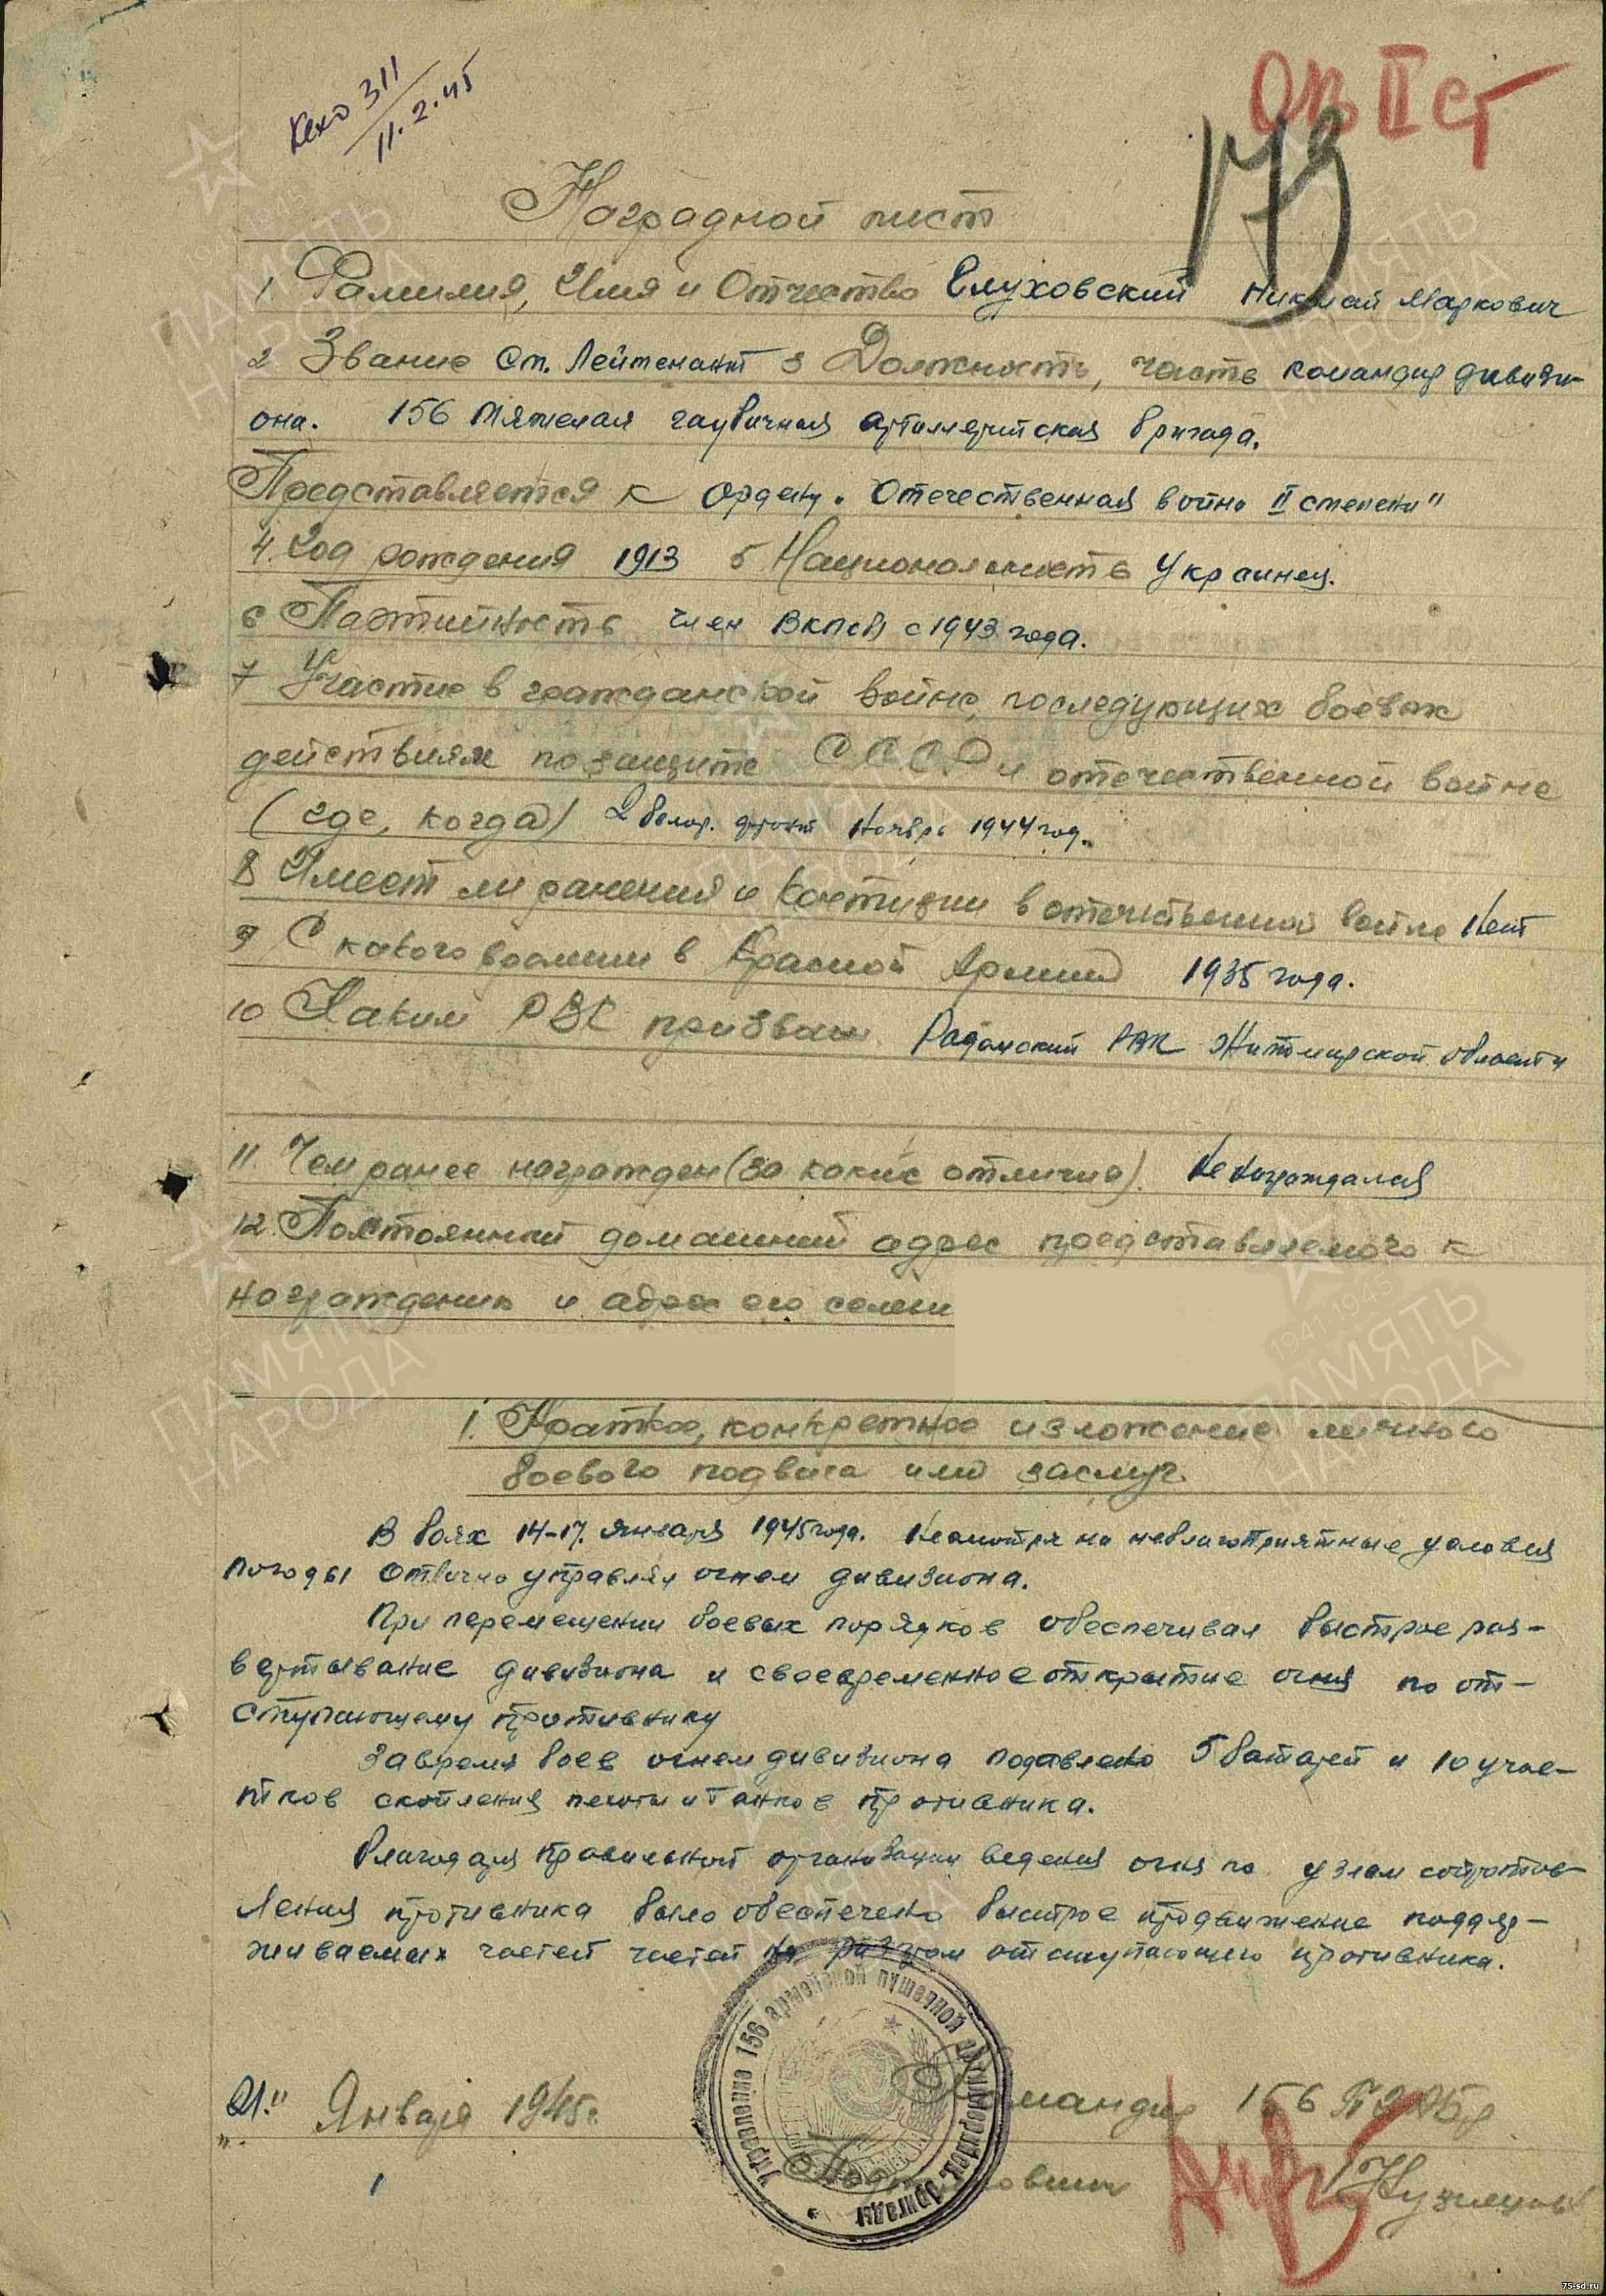 311
11.2.45
ОВ II ст
179
Наградной лист
1. Фамилия, Имя и Отчество Глуховский Николай Маркович
2 Звание Ст. Лейтенант 3 Должность, часть командир дивизи-
она. 156 тяжелая гаубичная артиллерийская бригада.
Представляется к ордену „Отечественная война II степени"
4. Год рождения 1913 5 Национальность Украинец.
6 Партийность член ВКП(б) с 1943 года.
7 Участие в гражданской войне, последующих боевых
действиях по защите СССР и отечественной войне
(где, когда) 2 белор. фронт Ноябрь 1944 год.
8 Имеет ли ранения и контузии в отечественной войне Нет
9 С какого времени в Красной Армии 1935 года.
10 Каким РВК призван Радомский РВК Житомирской области
11. Чем ранее награжден (за какие отличия). Не награждался
12. Постоянный домашний адрес представляемого к
награждению и адрес его семьи
1. Краткое, конкретное изложение личного
боевого подвига или заслуг.
В боях 14-17. января 1945 года. Несмотря на неблагоприятные условия
погоды отлично управлял огнем дивизиона.
При перемещении боевых порядков обеспечивал быстрое раз-
вертывание дивизиона и своевременное открытие огня по от-
ступающему противнику
За время боев огнем дивизиона подавлено 5 батарей и 10 учас-
тков скопления пехоты и танков противника.
Благодаря правильной организации ведения огня по узлам сопротив-
ления противника было обеспечено быстрое продвижение поддер-
живаемых частей частей на отступающего противника.
Управление 156 армейской пушечной артиллерийск. бригады
21." Января 1945г.
Командир 156 Бр
Подполковник /Кузнецов/
ПАМЯТЬ НАРОДА
75-sd.ru